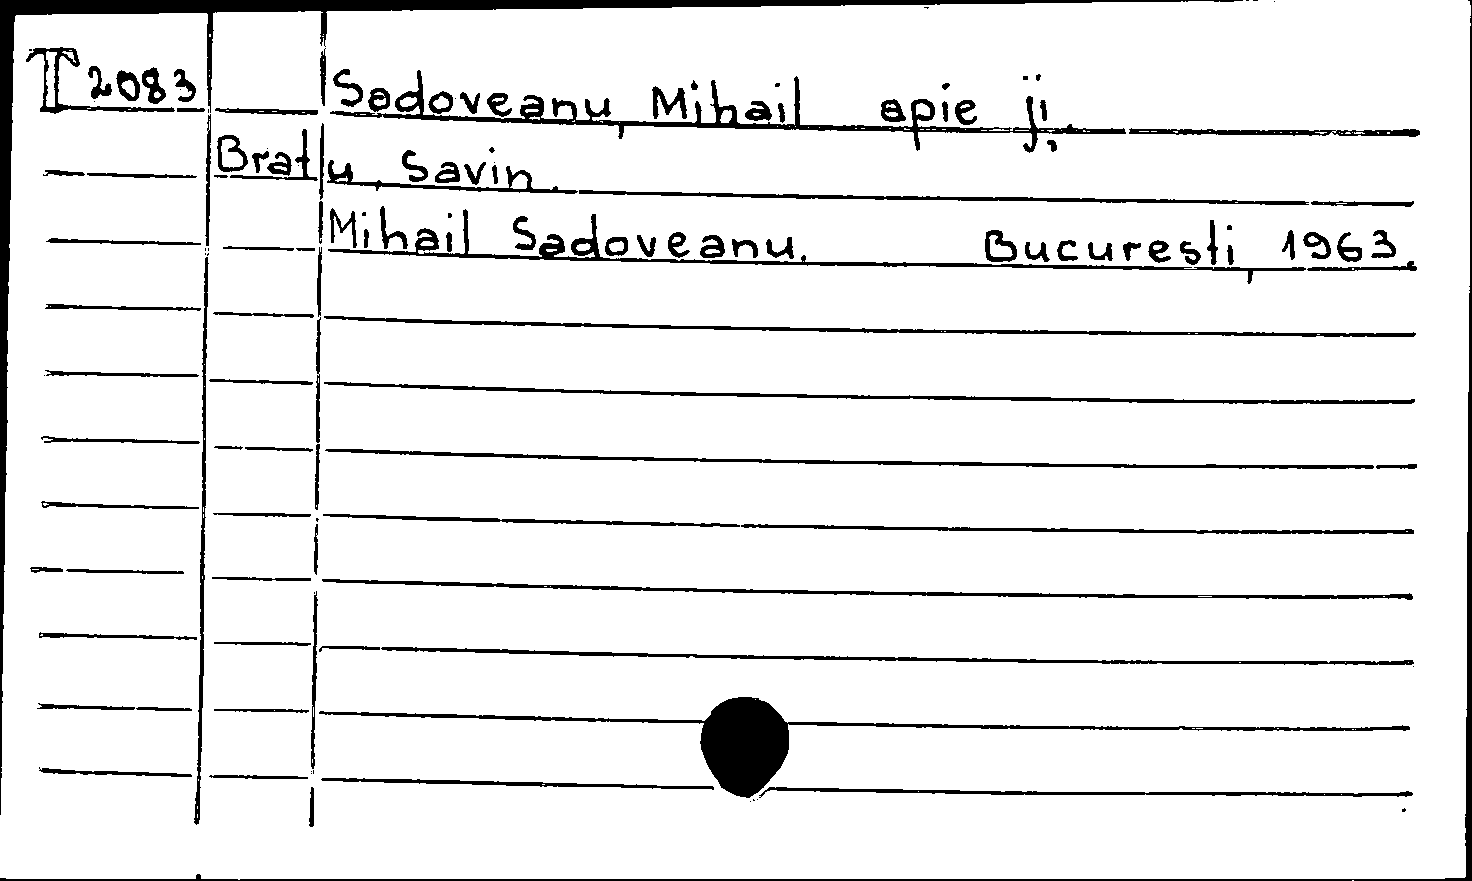 T 2083 Sadoveanu, Mihail apie jį.
Bratu, Savin.
Mihail Sadoveanu. Bucuresti, 1963.